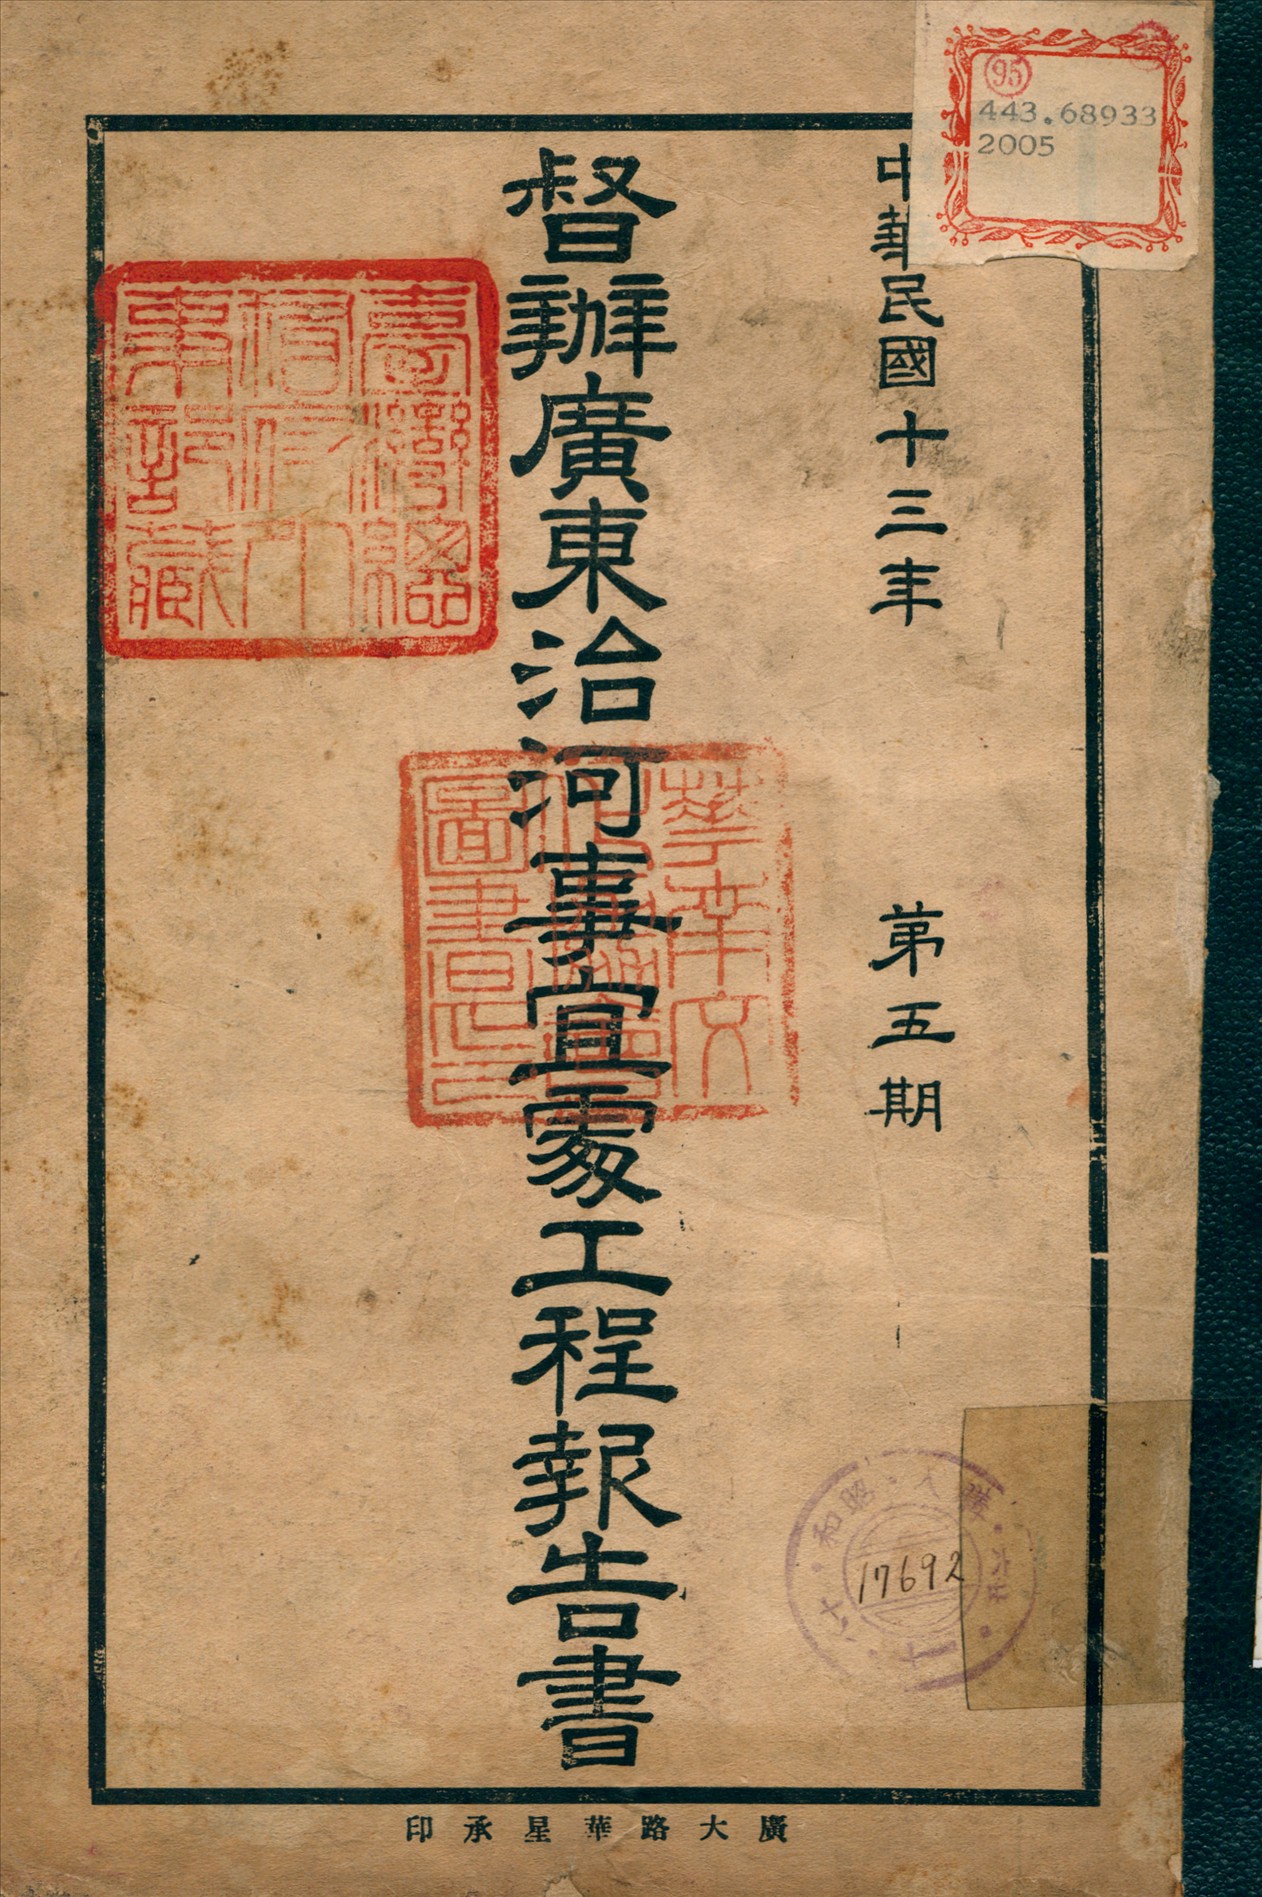 中華民國十三年 第五期
督辦廣東治河事宜處工程報告書
廣大路華星承印
95
443.68933
2005
臺灣總
督府
事部藏
圖書
17692
昭和